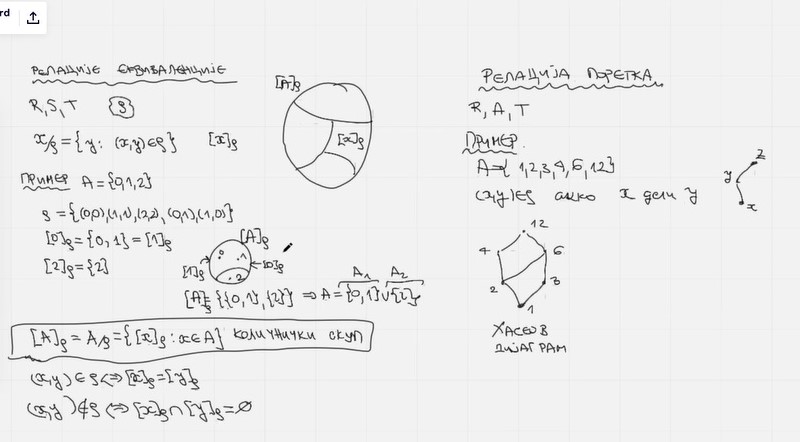 rd
РЕЛАЦИЈЕ ЕКВИВАЛЕНЦИЈЕ
R, S, T {ρ}
x/ρ = {y : (x,y) ∈ ρ} [x]ρ
ПРИМЕР A = {0,1,2}
ρ = {(0,0),(1,1),(2,2),(0,1),(1,0)}
[0]ρ = {0,1} = [1]ρ
[2]ρ = {2}
[A]ρ
0 1
2
[1]ρ
[0]ρ
A₁ A₂
[A]ρ = {{0,1},{2}} ⇒ A = {0,1} ∪ {2}
[A]ρ = A/ρ = {[x]ρ : x ∈ A} КОЛИЧНИЧКИ СКУП
(x,y) ∈ ρ ⇔ [x]ρ = [y]ρ
(x,y) ∉ ρ ⇔ [x]ρ ∩ [y]ρ = ∅
[A]ρ
[x]ρ
РЕЛАЦИЈА ПОРЕТКА
R, A, T
ПРИМЕР
A = {1,2,3,4,6,12}
(x,y) ∈ ρ акко x дели y
z
y
x
12
4 6
2 3
1
ХАСЕОВ
ДИЈАГРАМ